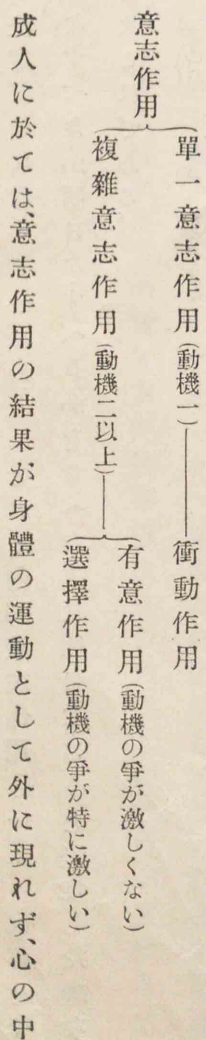 意志作用
單一意志作用(動機一)――衝動作用
複雜意志作用(動機二以上)――
有意作用(動機の爭が激しくない)
選擇作用(動機の爭が特に激しい)
成人に於ては、意志作用の結果が身體の運動として外に現れず、心の中